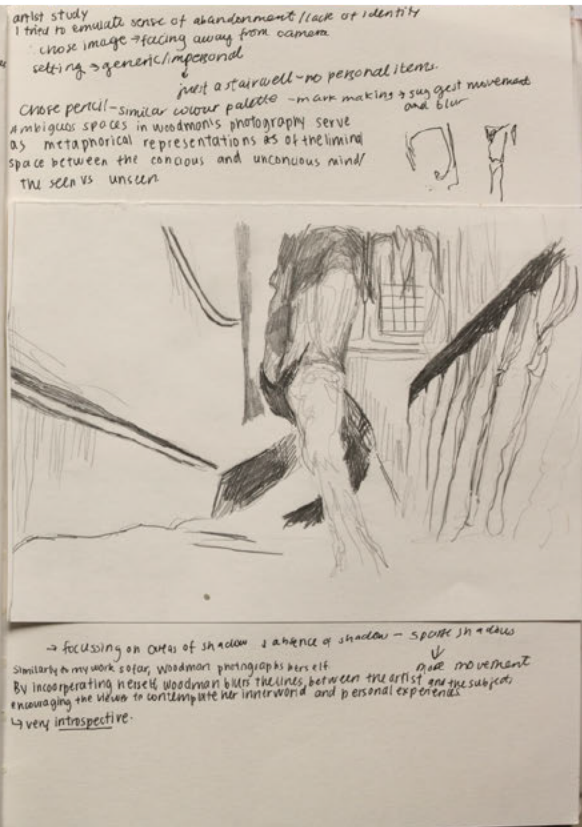 artist study
I tried to emulate sense of abandonment/lack of identity
chose image → facing away from camera
setting → generic/impersonal
just a stairwell - no personal items.
chose pencil - similar colour palette - mark making → suggest movement
and blur
Ambiguos spaces in woodman's photography serve
as metaphorical representations as of the liminal
space between the concious and unconcious mind/
the seen vs unseen
→ focussing on areas of shadow & absence of shadow - sparse shadows
more movement
Similarly to my work so far, Woodman photographs herself.
By incoorperating herself, woodman blurs the lines, between the artist and the subject,
encouraging the viewer to contemplate her inner world and personal experiences
↳ very introspective.